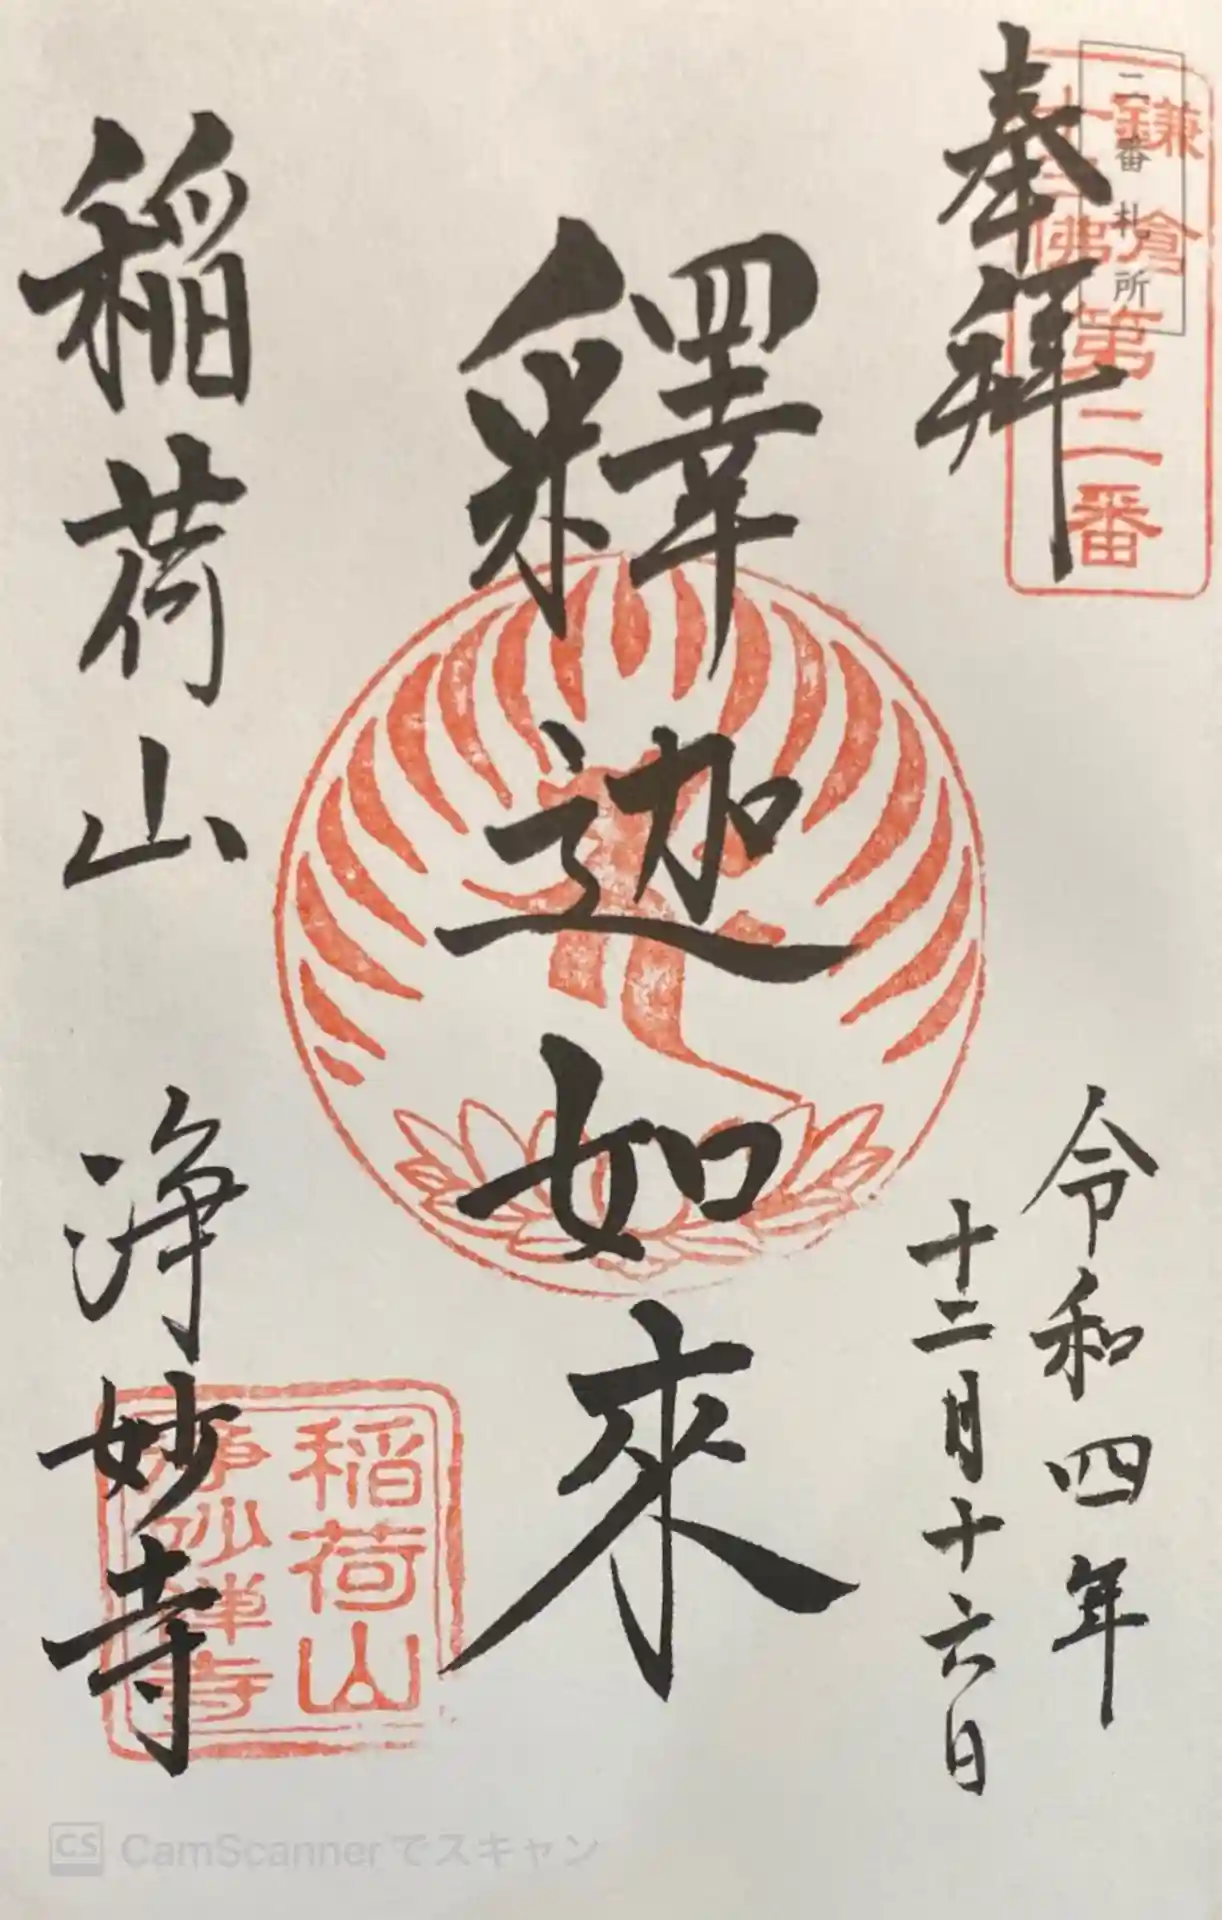 奉拝
二番札所
鎌倉
十三佛
第二番
釋迦如來
令和四年
十二月十六日
稲荷山 浄妙寺
稲荷山
浄妙禅寺
CS CamScannerでスキャン